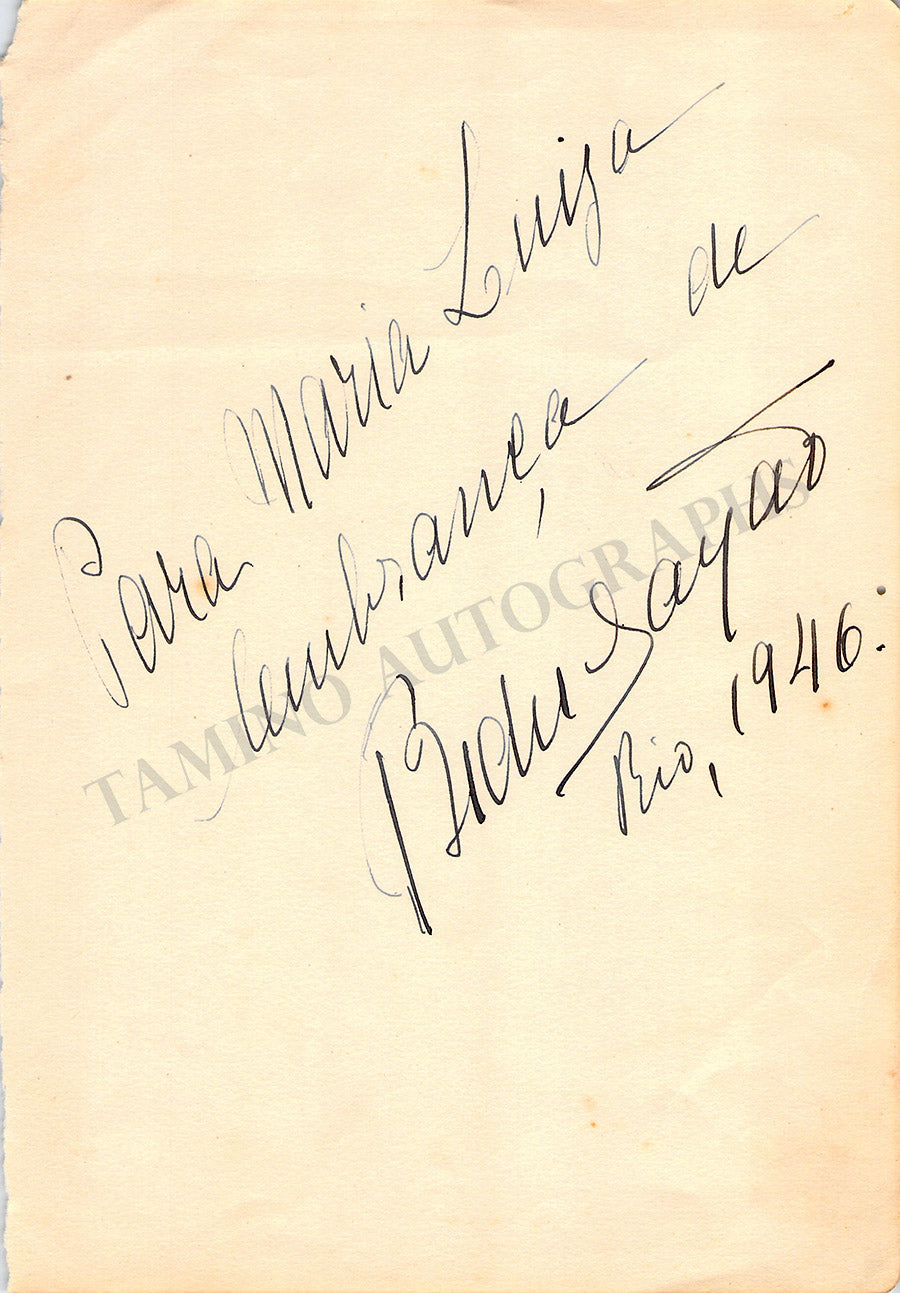 Para Maria Luiza
lembrança de
Bidu Sayão
Rio, 1946.
TAMINO AUTOGRAPHS